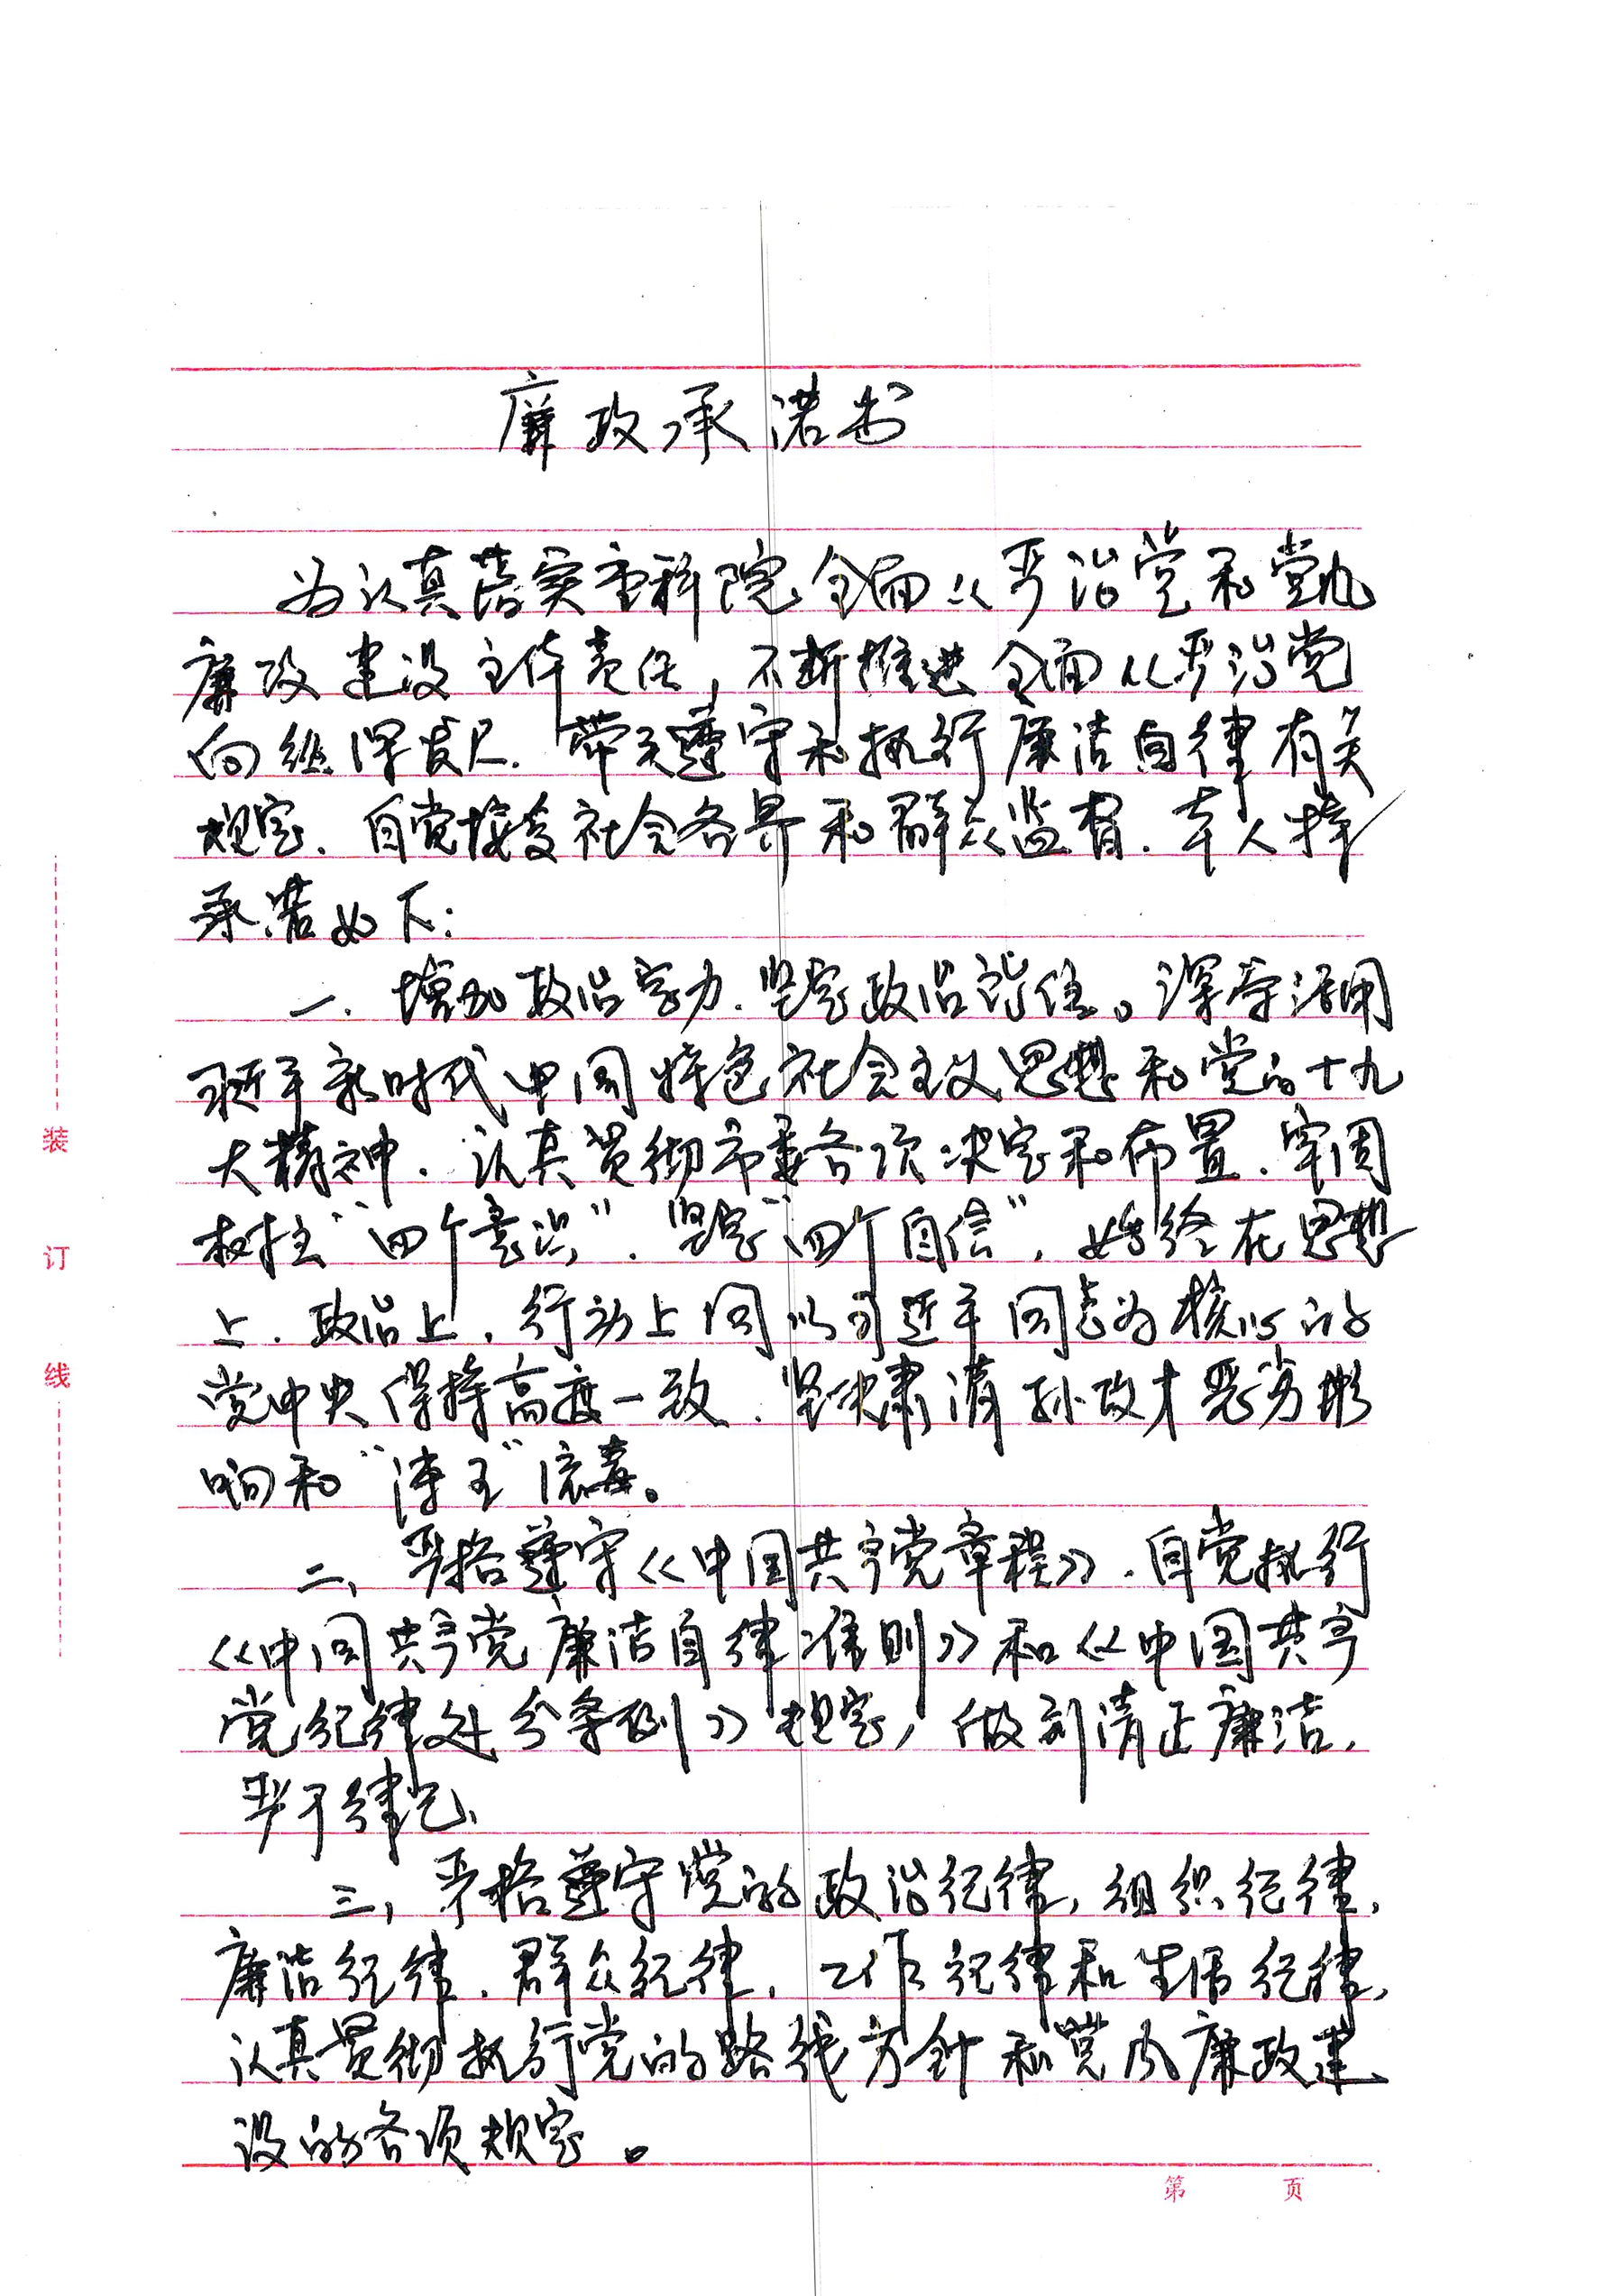 廉政承诺书
为认真落实重科院全面从严治党和党风
廉政建设主体责任，不断推进全面从严治党
向纵深发展.带头遵守和执行廉洁自律有关
规定.自觉接受社会各界和群众监督.本人特
承诺如下：
一.增加政治定力.坚定政治信仰。深学活用
习近平新时代中国特色社会主义思想和党的十九
大精神.认真贯彻市委各项决定和布置.牢固
树立“四个意识”.坚定“四个自信”，始终在思想
上.政治上.行动上同以习近平同志为核心的
党中央保持高度一致.坚决肃清孙政才恶劣影
响和“薄王”流毒。
二、严格遵守《中国共产党章程》.自觉执行
《中国共产党廉洁自律准则》和《中国共产
党纪律处分条例》规定，做到清正廉洁，
严于律己、
三、严格遵守党的政治纪律，组织纪律，
廉洁纪律.群众纪律，工作纪律和生活纪律，
认真贯彻执行党的路线方针和党风廉政建
设的各项规定。
装
订
线
第 页